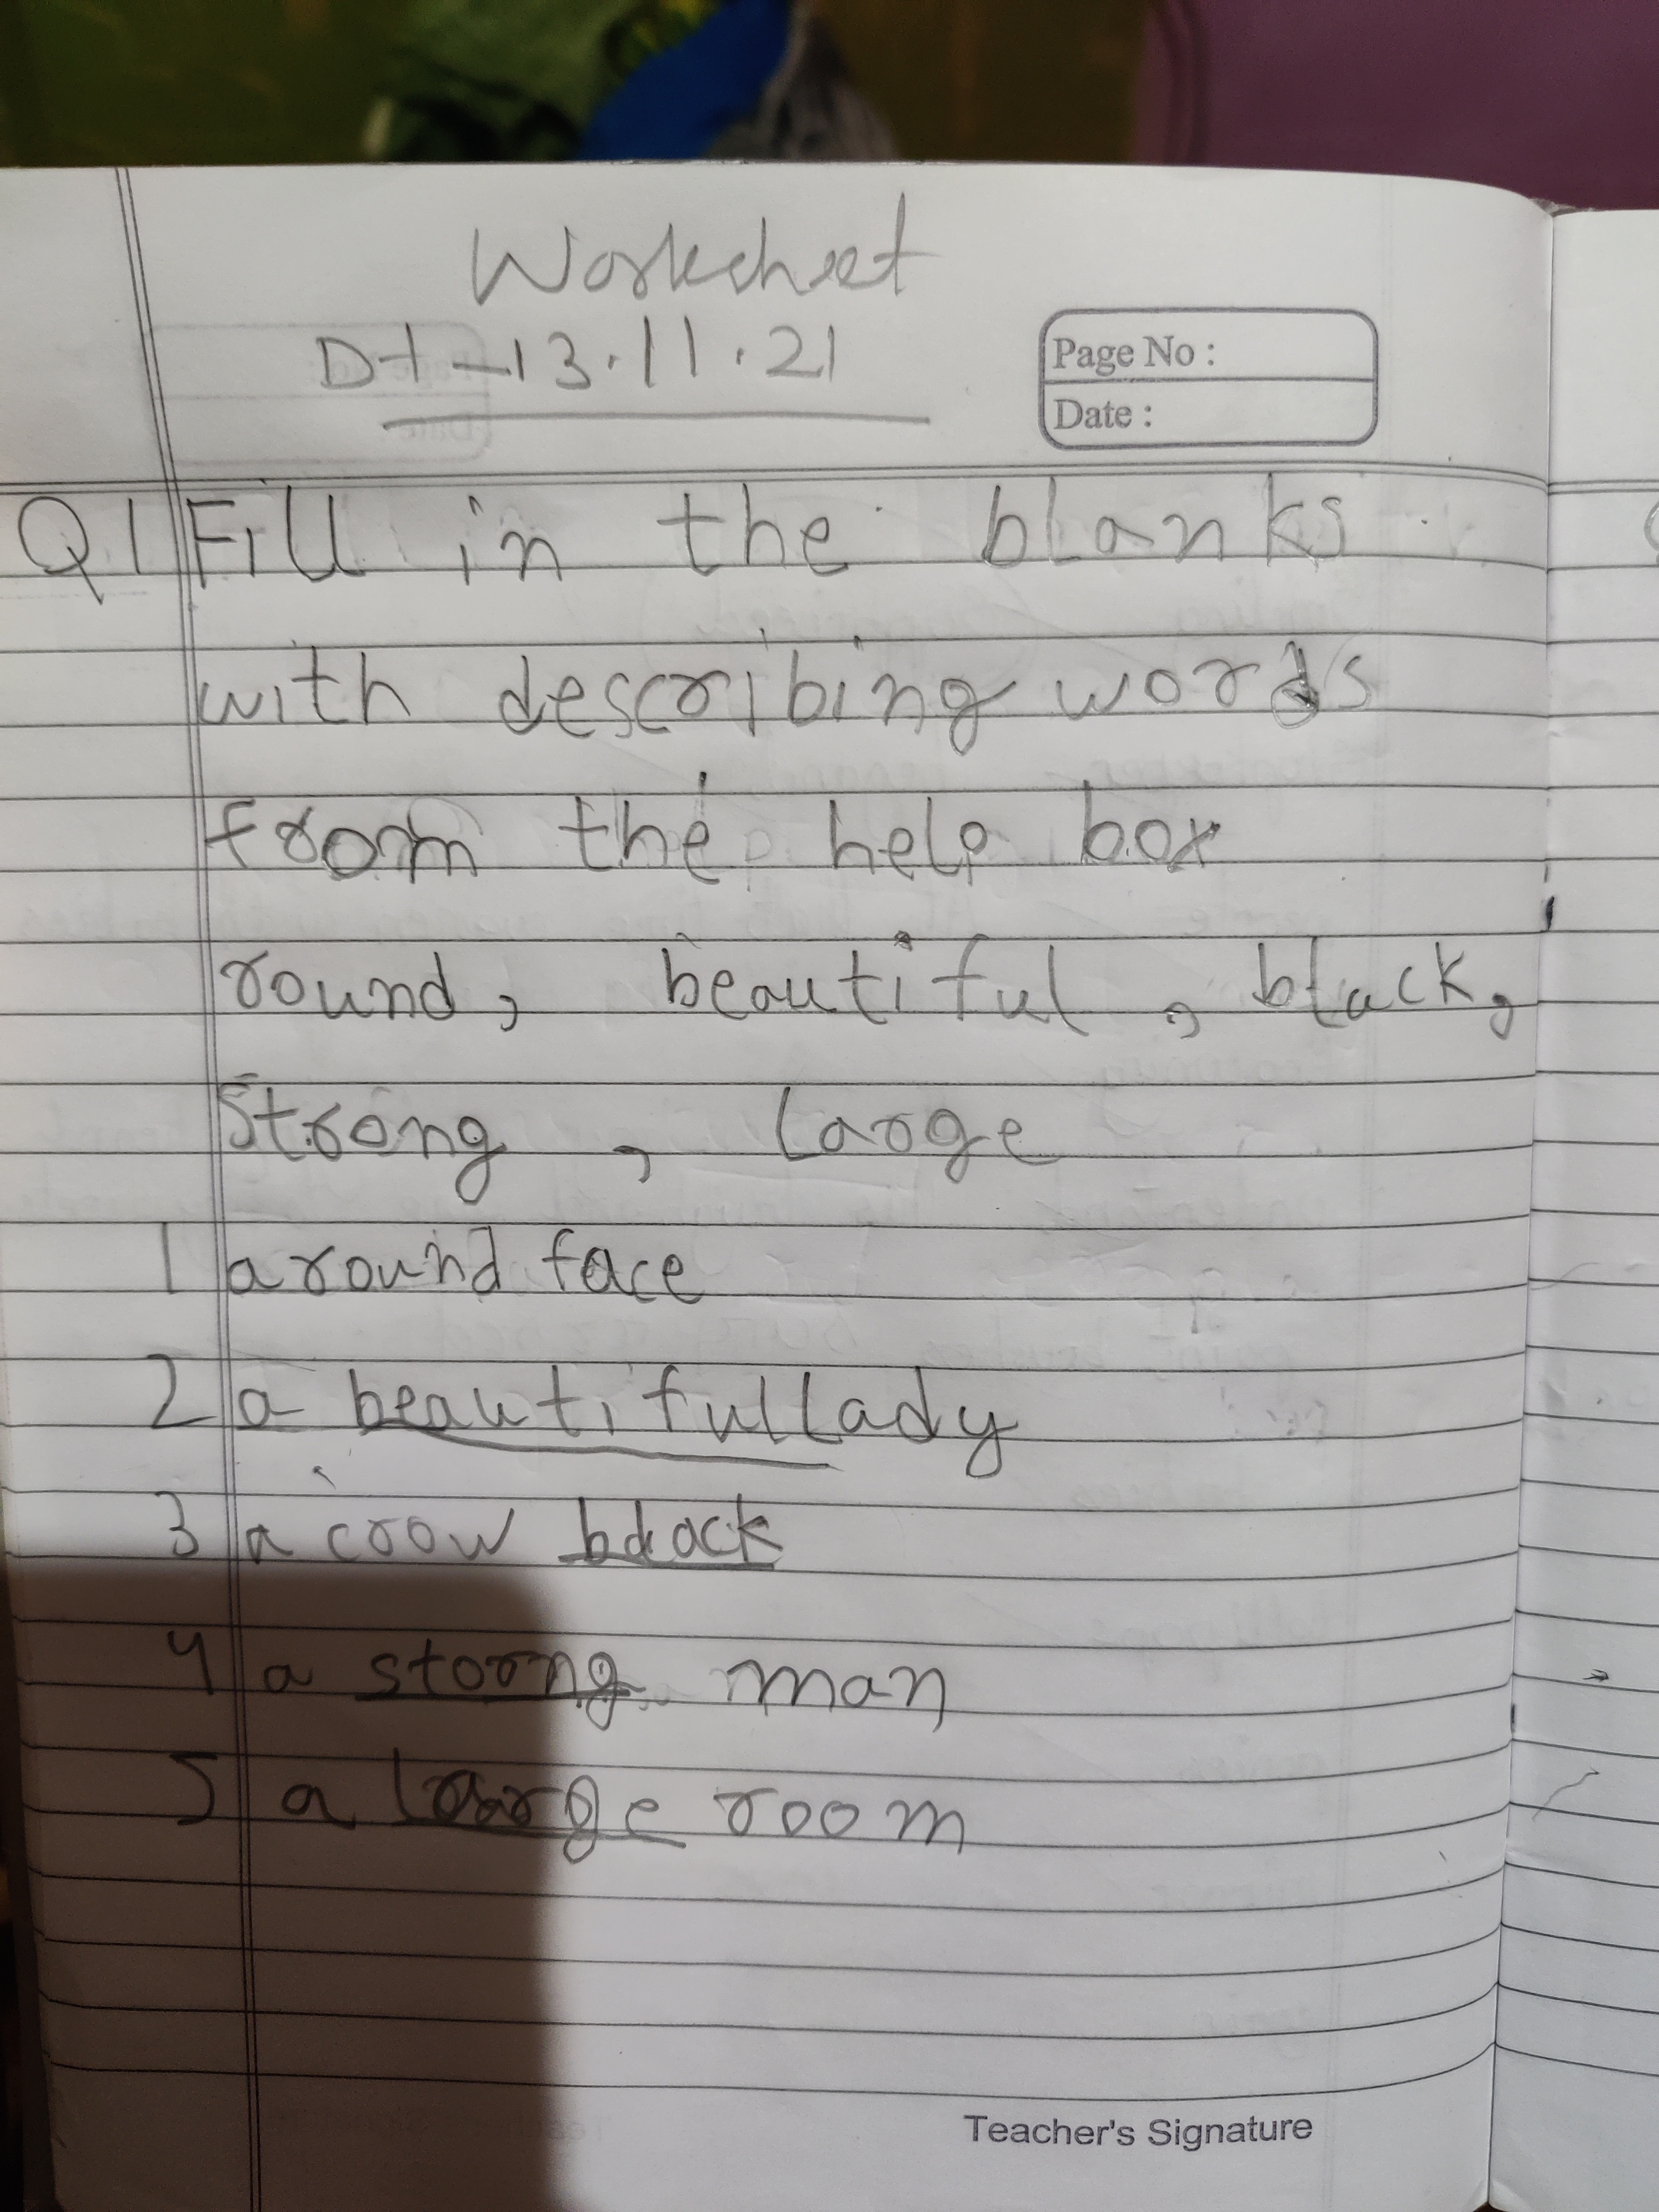 Worksheet
Dt-13.11.21
Page No :
Date :
Q1 Fill in the blanks
with describing words
from the help box
round, beautiful, black,
Strong, large
1 a round face
2 a beautiful lady
3 a crow black
4 a storng man
5 a large room
Teacher's Signature